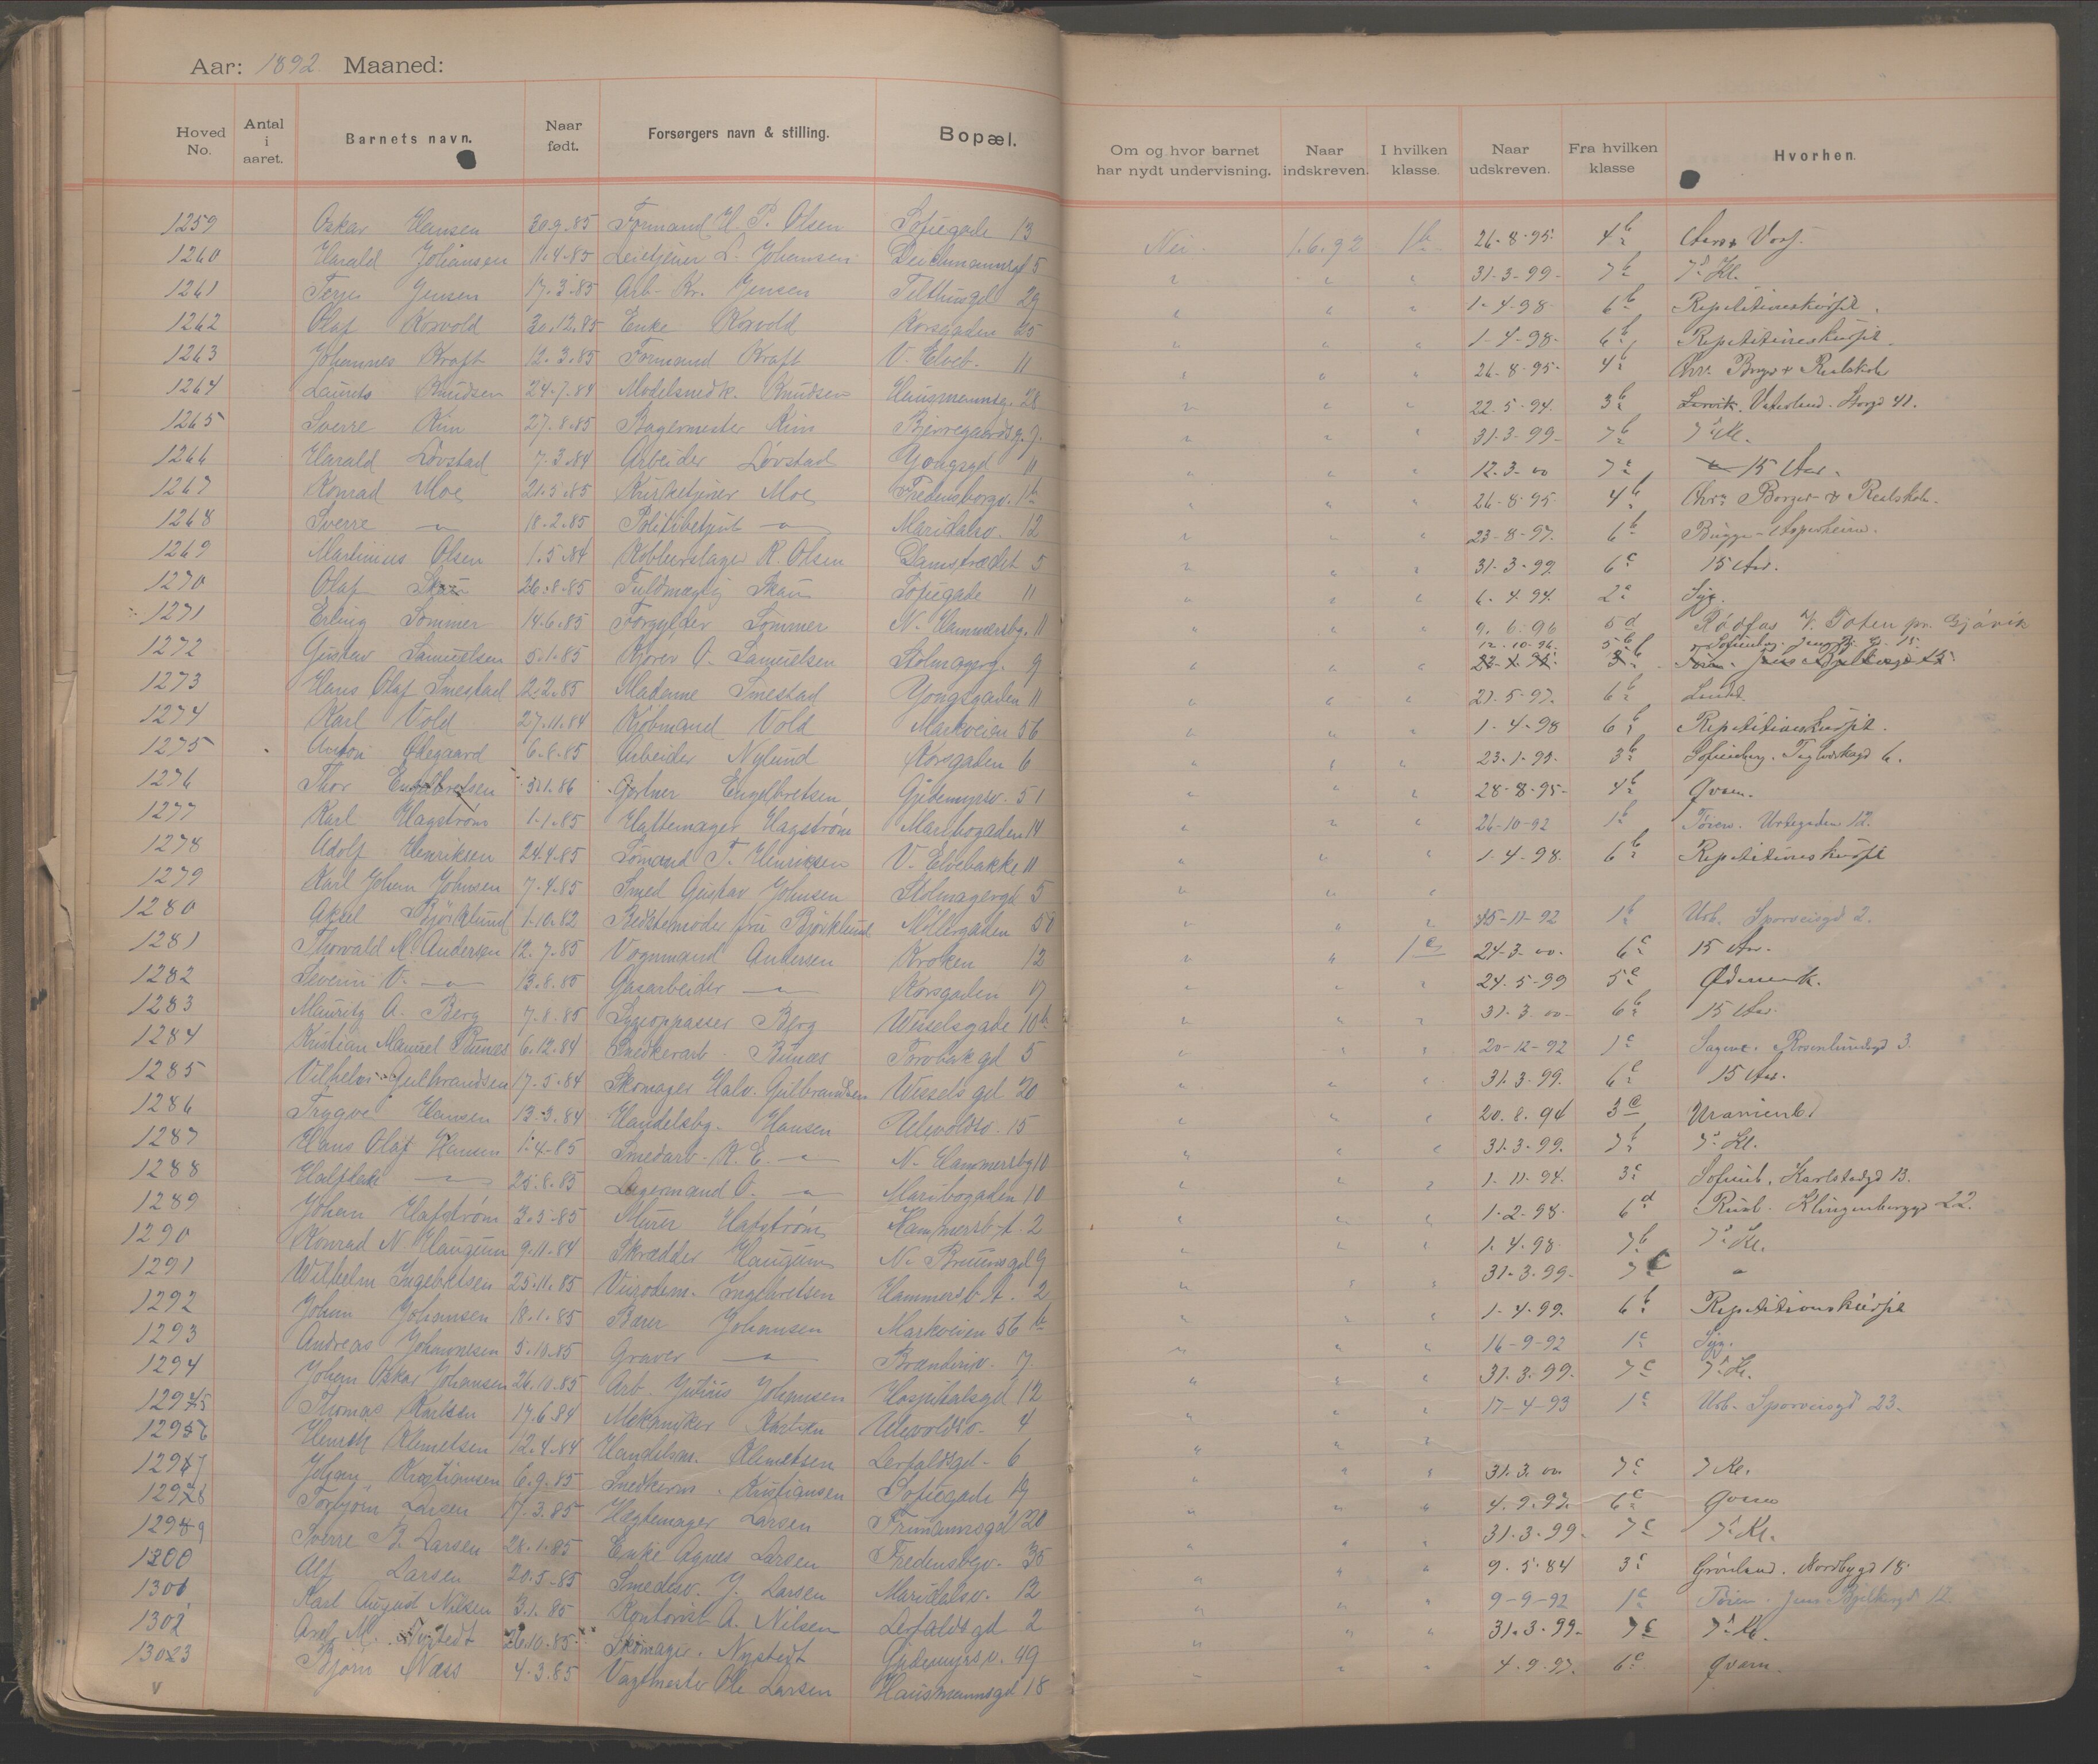 Aar: 1892 Maaned:
Hoved No. Antal i aaret. Barnets navn. Naar født. Forsørgers navn & stilling. Bopæl. Om og hvor barnet har nydt undervisning. Naar indskreven. I hvilken klasse. Naar udskreven. Fra hvilken klasse Hvorhen.
1259 Oskar Hansen 30.9.85 Formand H. P. Olsen Sofiegade 13 Nei 1.6.92 1b 26-8-95 4b
1260 Harald Johansen 11.4.85 L. Johansen Deichmannsgd 5 " " " 31-3-99 7b 7de Kl.
1261 Terje Jensen 17.3.85 Arb. Kr. Jensen Telthusgd 29 " " " 1-4-98 6b Repetitionskurset.
1262 Olaf Korvold 30.12.85 Enke Korvold Korsgaden 25 " " " 1-4-98 6b Repetitionskurset.
1263 Johannes Kraft 12.3.85 Formand Kraft V. Elveb. 11 " " " 26-8-95 4b Chr. Borger & Realskole
1264 Laurits Knudsen 24-7.84 Modelsnedk. Knudsen Hausmannsg. 28 " " " 22-5-94 3b Vaterland. Storgd 41.
1265 Sverre Kim 27.8.85 Bagermester Kim Bjerregaardsg. 7. " " " 31-3-99 7b 7de Kl.
1266 Harald Løvstad 7.3.84 Arbeider Løvstad Yongsgd 11 " " " 12-3-00 7c 15 Aar.
1267 Konrad Moe 21.5.85 Kirketjener Moe Fredensborgv. 1b " " " 26-8-95 4b Chr. Borger- & Realskole.
1268 Sverre " 18.2.85 Politibetjent " Maridalsv. 12 " " " 23-8-97 6b Bugge-Asperheim.
1269 Martinius Olsen 1.5.84 Kobberslager K. Olsen Damstrædet 5 " " " 31-3-99 6c 15 Aar.
1270 Olaf Skau 26.8.85 Fuldmægtig Skau Sofiegade 11 " " " 6.4.94 2c Syg.
1271 Erling Sommer 14.6.85 Forgylder Sommer N. Hammersbg. 11 " " " 9.6.96 5d Rødfos V. Toten pr. Gjøvik
1272 Gustav Samuelsen 5.1.85 Kjører O. Samuelsen Stolmagerg. 9 " " " 12-10-96 5b Sofienberg.
1273 Hans Olaf Smestad 2.2.85 Madame Smestad Yongsgaden 11 " " " 21-5-97 6b Landet
1274 Karl Vold 27.11.84 Kjøbmand Vold Markveien 56 " " " 1-4-98 6b Repetitionskurset.
1275 Anton Ødegaard 6.8.85 Arbeider Nylund Korsgaden 6 " " " 23-1-95 3b Sofienberg. Teglverksgd 6.
1276 Thor Engelbretsen 3.1.86 Gartner Engelbretsen Gjetemyrsv. 51 " " " 28-8-95 4b Qværn.
1277 Karl Hagstrøm 1.1.85 Hattemager Hagstrøm Maribogaden 14 " " " 26-10-92 1b Tøien. Urtegaden 12.
1278 Adolf Henriksen 24.4.85 Sømand T. Henriksen V. Elvebakke 11 " " " 1-4-98 6b Repetitionskurset
1279 Karl Johan Johnsen 7.4.85 Smed Gustav Johnsen Stolmagergd 5 " " "
1280 Aksel Bjørklund 1.10.82 Bedstemoder fru Bjørklund Møllergaden 58 " " " 15-11-92 1b Urb. Sporveisgd 2.
1281 Thorvald M. Andersen 12.7.85 Vognmand Andersen Kroken 12 " " 1c 24-3-00 6c 15 Aar.
1282 Severin V. " 13.8.85 Gasarbeider " Korsgaden 17 " " " 24-5-99 5c
1283 Mauritz A. Berg 7.8.85 Sygeopasser Berg Wesselsgade 10b " " " 31-3-00 6b 15 Aar
1284 Kristian Manuel Bunæs 6.12.84 Snedkerarb. Bunæs Torvbakgd 5 " " " 20-12-92 1c Sagene. Rosenlundgd 3.
1285 Vilhelm Gulbrandsen 17.5.84 Skomager Halv. Gulbrandsen Wessels gd 20 " " " 31.3.99. 6c 15 Aar.
1286 Trygve Hansen 13.3.84 Handelsbg. Hansen Ullevoldsv. 15 " " " 20.8.94 3c Uranienb.
1287 Hans Olaf Hansen 1.4.85 Smedarb. K. E. " N. Hammersbg 10 " " " 31-3-99. 7b 7de Kl.
1288 Halfdan " 25.8.85 Lagermand O. " Maribogaden 10 " " " 1-11-94. 3c Sofienb. Karlstadgd 13.
1289 Johan Hafstrøm 3.5.85 Murer Hafstrøm Hammersb. t. 2 " " " 1-2-98 6d Rusl. Klingenberggd 22.
1290 Konrad N. Haugum 9.11.84 Skrædder Haugum N. Bruunsgd 9 " " " 1.4.98 7b 7de Kl.
1291 Wilhelm Ingebretsen 25.11.85 Viseadm. Ingebretsen Hammersb. t. 2 " " " 31-3-99. 7c "
1292 Johan Johansen 18.1.85 Bærer Johansen Markveien 56b " " " 1-4-99. 6b Repetitionskurset
1293 Andreas Johannesen 5.10.85 Graver " Brænneriv. 7 " " " 16-9-92 1c Syg.
1294 Johan Oskar Johansen 26.10.85 Arb. Julius Johansen Hospitalsgd 12 " " " 31.3.99. 7c 7de Kl.
1295 Thomas Karlsen 17.6.84 Mekaniker Karlsen Ullevoldsv. 4 " " " 17-4-93 1c Urb. Sporveisgd 23.
1296 Henrik Klemetsen 12.4.84 Handelsm. Klemetsen Lerfaldsgd. 6 " " "
1297 Johan Kristiansen 6.9.85 Snedkerm. Kristiansen Sofiegade 19 " " " 31.3.00 7c 7 Kl.
1298 Torbjørn Larsen 17.3.85 Hægtemager Larsen Frimannsgd 20 " " " 4.9.97. 6c Qværn
1299 Sverre B. Larsen 28.1.85 Enke Agnes Larsen Fredensbgv. 35 " " " 31-3-99. 7c 7de Kl.
1300 Alf Larsen 20.5.85 Smedesv. J. Larsen Maridalsv. 12 " " " 9-5-84 3c Grønland. Nordbygd 18
1301 Karl August Nilsen 3.1.85 Kontorist A. Nilsen Lerfaldsgd 2 " " " 9-9-92 1c Tøien. Jens Bjelkesgd 12
1302 Axel M. Nystedt 26.10.85 Skomager. Nystedt Gjetemyrsv. 49 " " " 31.3-99. 7c 7de Kl.
1303 Bjørn Næss 4.3.85 Vagtmester Ole Larsen Hausmannsgd 18 " " " 4.9.97. 6c Qværn.